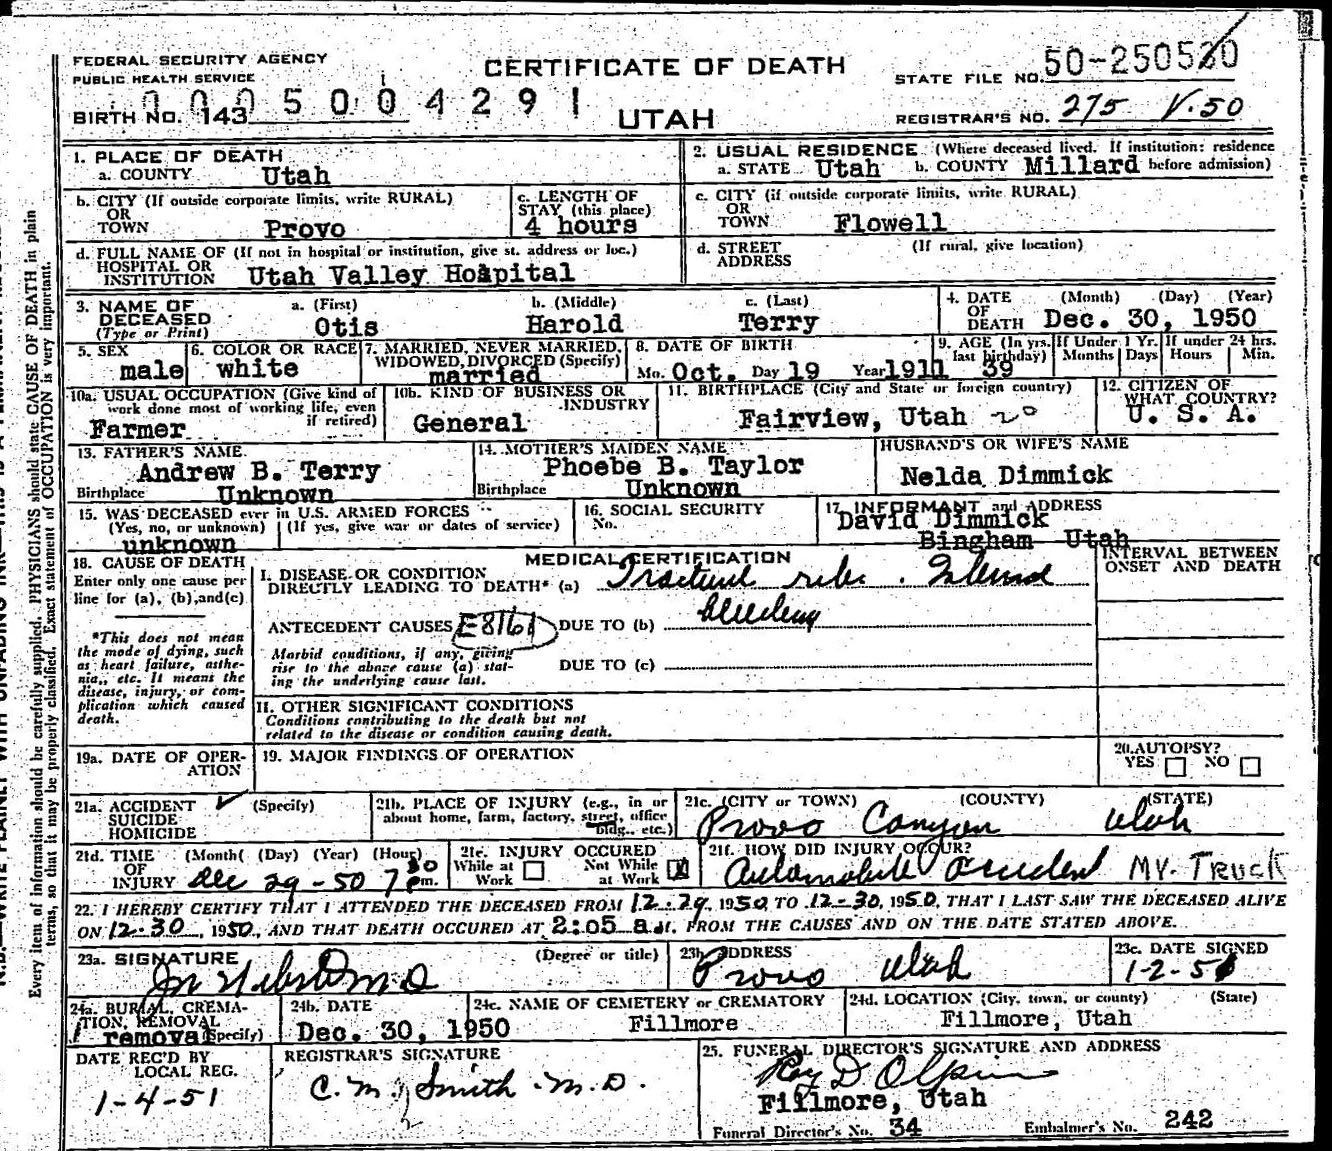 FEDERAL SECURITY AGENCY
PUBLIC HEALTH SERVICE
CERTIFICATE OF DEATH
STATE FILE NO. 50-250520
0005004291
BIRTH NO. 143
UTAH
REGISTRAR'S NO. 275 V.50
1. PLACE OF DEATH
a. COUNTY Utah
2. USUAL RESIDENCE (Where deceased lived. If institution: residence
a. STATE Utah b. COUNTY Millard before admission)
b. CITY (If outside corporate limits, write RURAL)
OR
TOWN Provo
c. LENGTH OF
STAY (this place)
4 hours
c. CITY (if outside corporate limits, write RURAL)
OR
TOWN Flowell
d. FULL NAME OF (If not in hospital or institution, give st. address or loc.)
HOSPITAL OR
INSTITUTION Utah Valley Hospital
d. STREET (If rural, give location)
ADDRESS
3. NAME OF
DECEASED
(Type or Print)
a. (First) b. (Middle) c. (Last)
Otis Harold Terry
4. DATE (Month) (Day) (Year)
OF
DEATH Dec. 30, 1950
5. SEX
male
6. COLOR OR RACE
white
7. MARRIED, NEVER MARRIED,
WIDOWED, DIVORCED (Specify)
married
8. DATE OF BIRTH
Mo. Oct. Day 19 Year 1911
9. AGE (In yrs. last birthday)
39
If Under 1 Yr.
Months Days
If under 24 hrs.
Hours Min.
10a. USUAL OCCUPATION (Give kind of
work done most of working life, even
if retired)
Farmer
10b. KIND OF BUSINESS OR
INDUSTRY
General
11. BIRTHPLACE (City and State or foreign country)
Fairview, Utah
12. CITIZEN OF
WHAT COUNTRY?
U. S. A.
13. FATHER'S NAME
Andrew B. Terry
Birthplace Unknown
14. MOTHER'S MAIDEN NAME
Phoebe B. Taylor
Birthplace Unknown
HUSBAND'S OR WIFE'S NAME
Nelda Dimmick
15. WAS DECEASED ever in U.S. ARMED FORCES
(Yes, no, or unknown) (If yes, give war or dates of service)
unknown
16. SOCIAL SECURITY
No.
17. INFORMANT and ADDRESS
David Dimmick
Bingham Utah
18. CAUSE OF DEATH
Enter only one cause per
line for (a), (b), and (c)
*This does not mean
the mode of dying, such
as heart failure, asthe-
nia, etc. It means the
disease, injury, or com-
plication which caused
death.
MEDICAL CERTIFICATION
I. DISEASE OR CONDITION
DIRECTLY LEADING TO DEATH* (a) Fractured ribs. Internal
bleeding
ANTECEDENT CAUSES E8161 DUE TO (b)
Morbid conditions, if any, giving
rise to the above cause (a) stat-
ing the underlying cause last.
DUE TO (c)
II. OTHER SIGNIFICANT CONDITIONS
Conditions contributing to the death but not
related to the disease or condition causing death.
INTERVAL BETWEEN
ONSET AND DEATH
19a. DATE OF OPER-
ATION
19. MAJOR FINDINGS OF OPERATION
20. AUTOPSY?
YES NO
21a. ACCIDENT ✓ (Specify)
SUICIDE
HOMICIDE
21b. PLACE OF INJURY (e.g., in or
about home, farm, factory, street, office
bldg., etc.)
21c. (CITY or TOWN) (COUNTY) (STATE)
Provo Canyon Utah
21d. TIME (Month) (Day) (Year) (Hour)
OF
INJURY Dec 29-50 7 30 pm.
21e. INJURY OCCURED
While at Work
Not While at Work
21f. HOW DID INJURY OCCUR?
Automobile Accident MV. TRUCK
22. I HEREBY CERTIFY THAT I ATTENDED THE DECEASED FROM 12-29, 1950, TO 12-30, 1950, THAT I LAST SAW THE DECEASED ALIVE
ON 12-30, 1950, AND THAT DEATH OCCURED AT 2:05 a.m. FROM THE CAUSES AND ON THE DATE STATED ABOVE.
23a. SIGNATURE (Degree or title)
M D
23b. ADDRESS
Provo Utah
23c. DATE SIGNED
1-2-51
24a. BURIAL, CREMA-
TION, REMOVAL
removal (Specify)
24b. DATE
Dec. 30, 1950
24c. NAME OF CEMETERY or CREMATORY
Fillmore
24d. LOCATION (City, town, or county) (State)
Fillmore, Utah
DATE REC'D BY
LOCAL REG.
1-4-51
REGISTRAR'S SIGNATURE
C. M. Smith M.D.
25. FUNERAL DIRECTOR'S SIGNATURE AND ADDRESS
Roy D Olpin
Fillmore, Utah
Funeral Director's No. 34 Embalmer's No. 242
Every item of information should be carefully supplied. PHYSICIANS should state CAUSE OF DEATH in plain
terms, so that it may be properly classified. Exact statement of OCCUPATION is very important.